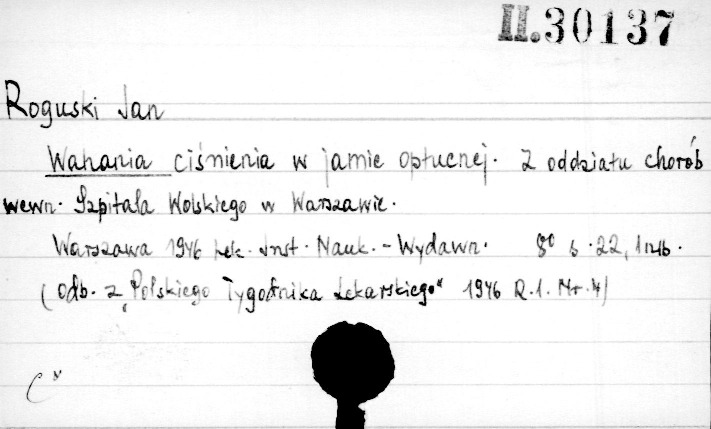 II.30137
Roguski Jan
Wahania ciśnienia w jamie opłucnej. Z oddziału chorób
wewn. Szpitala Wolskiego w Warszawie.
Warszawa 1946 Lek. Inst. Nauk.-Wydawn. 8° s. 22, 1 nlb.
(Odb. z „Polskiego Tygodnika Lekarskiego" 1946 R.1. Nr. 4)